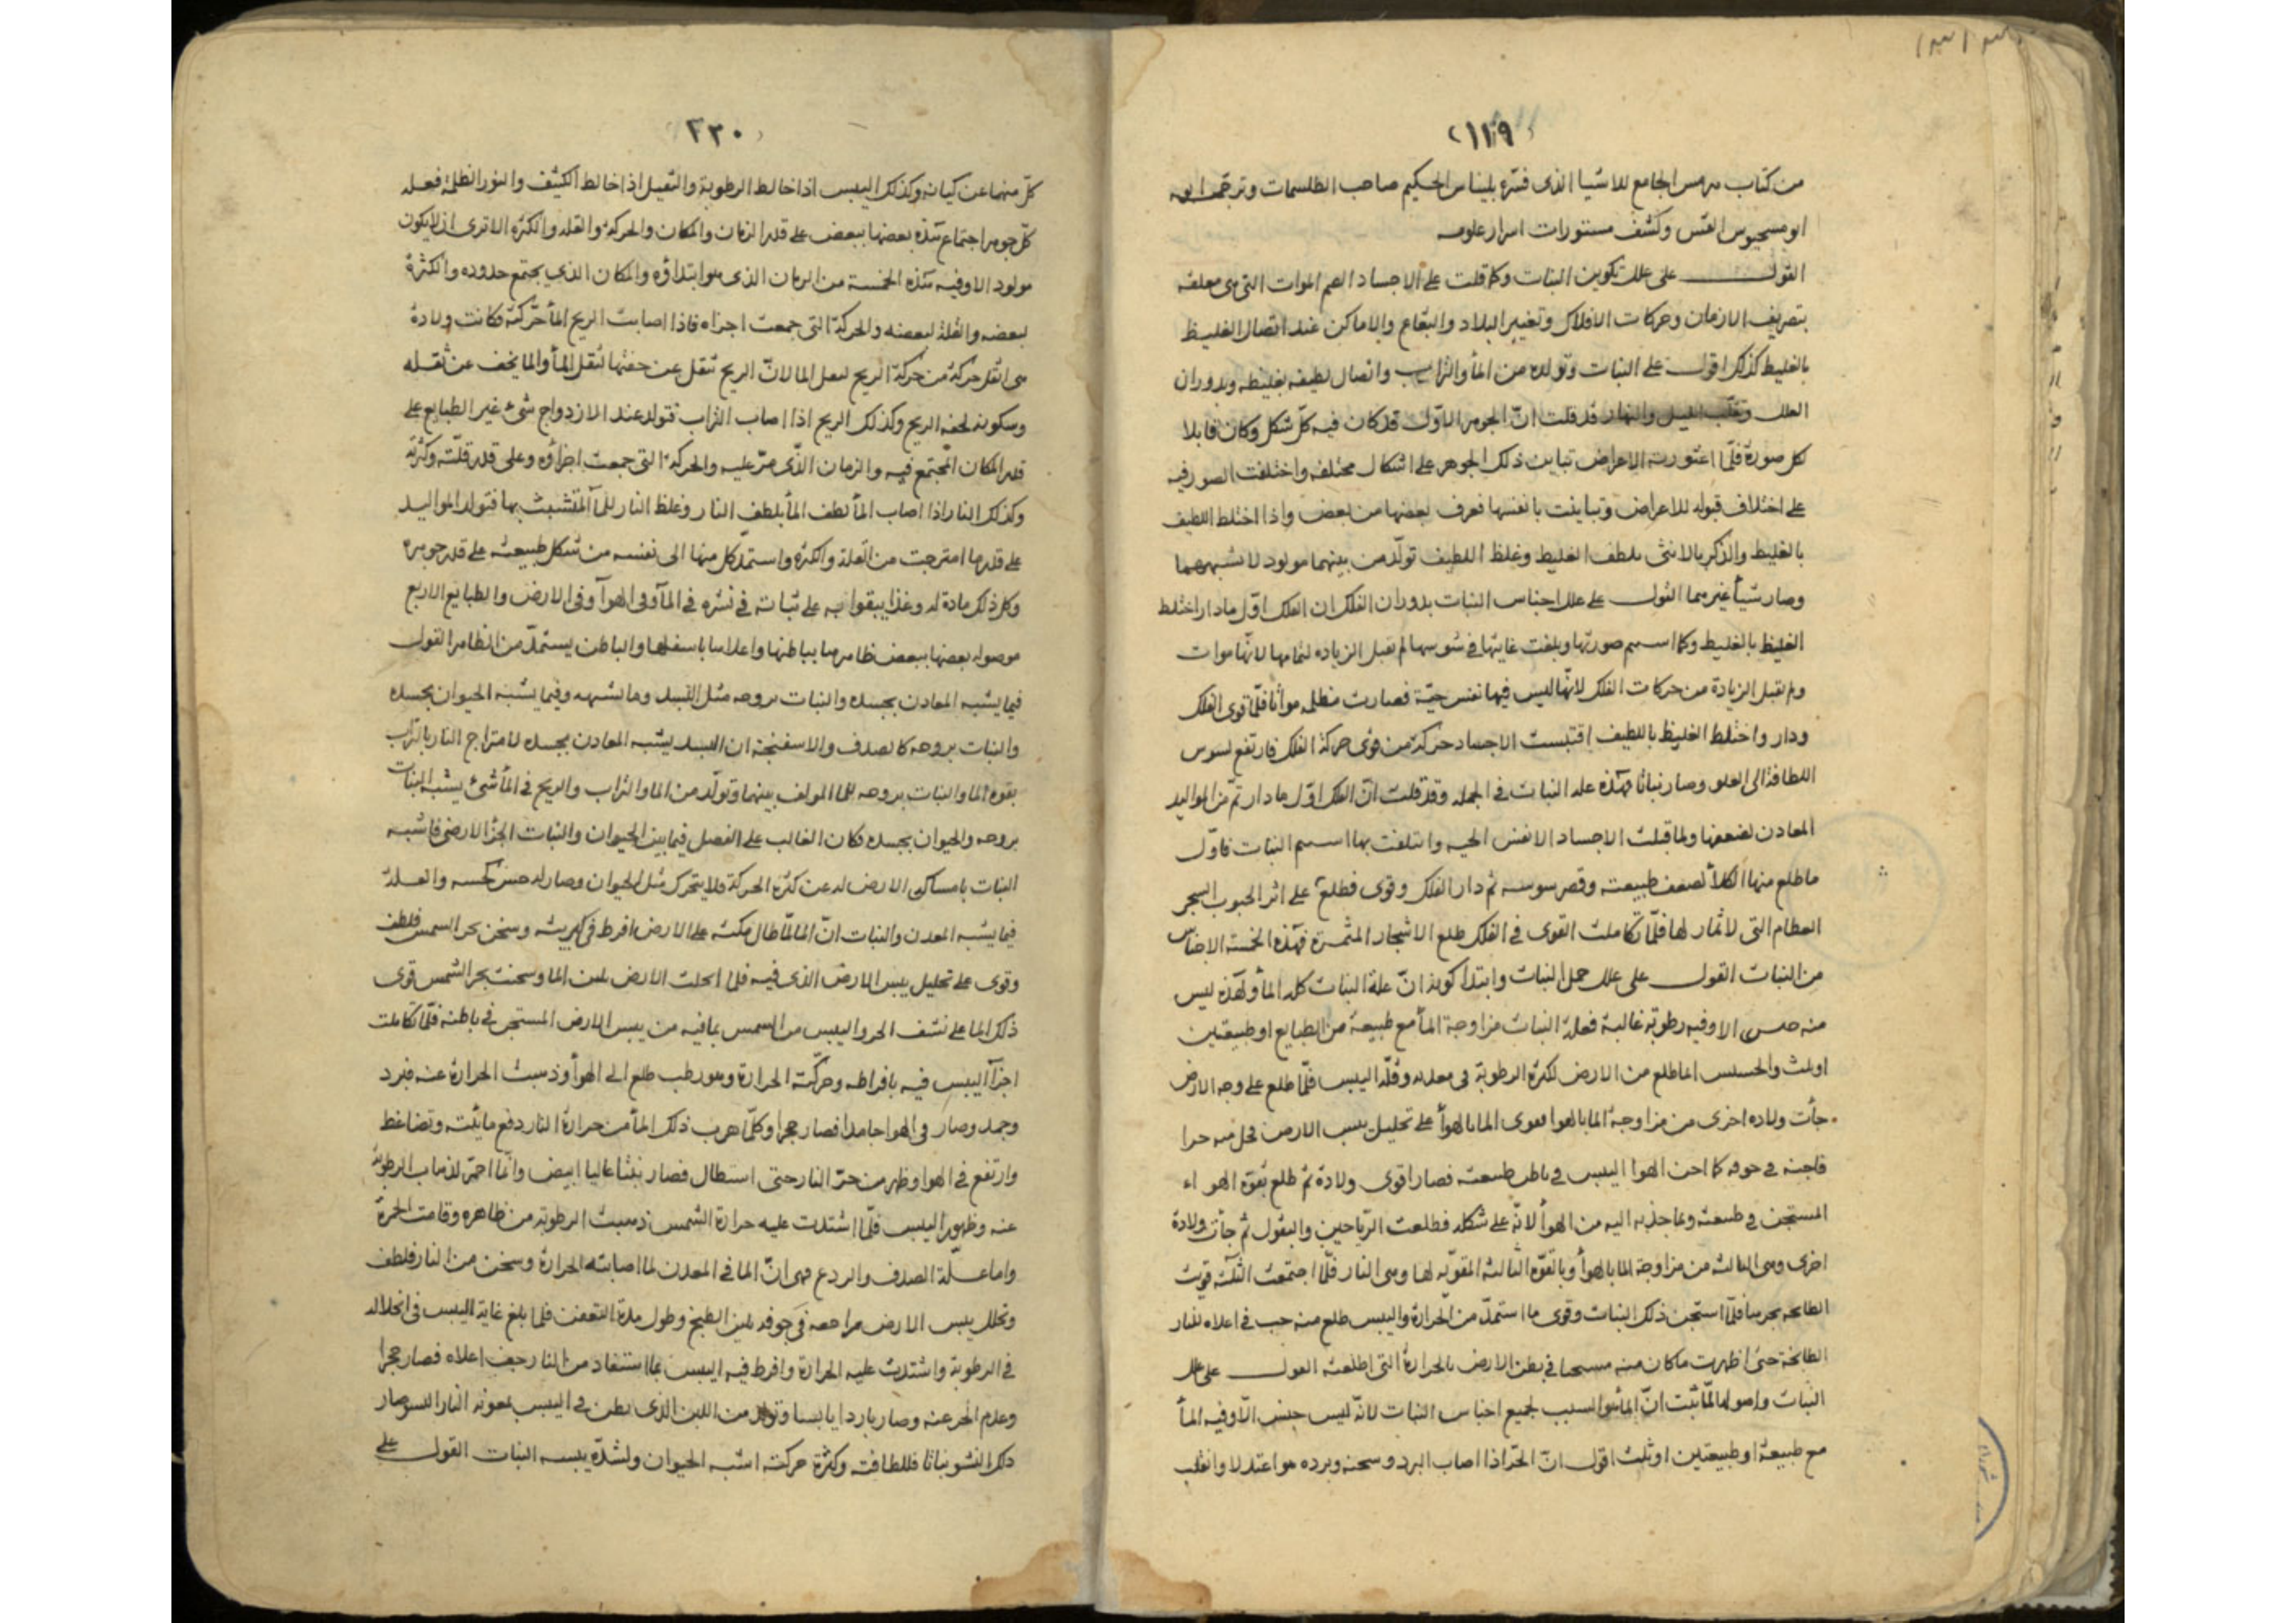 (١١٩)
من كتاب هرمس الجامع للاشيا الذى فسّره بليناس الحكيم صاحب الطلسمات وترجمه ابو
القس وكشف مستورات اسرار علومه
القول على علل تكوين النبات وكما قلت على الاجساد الصم الموات التى هى معلقه
بتصريف الازمان وحركات الافلاك وتغيير البلاد والبقاع والاماكن عند اتصال الغليظ
بالغليظ كذلك اقول على النبات وتولده من المأ والتراب واتصال لطيفه بغليظه وبدوران
الفلك وتقلب الليل والنهار قد قلت انّ الجوهر الاوّل قد كان فيه كلّ شكل وكان قابلا
كل صورة فلمّا اعتورته الاعراض تباين ذلك الجوهر على اشكال مختلفه واختلفت الصور فيه
على اختلاف قبوله للاعراض وتباينت بانفسها فعرف بعضها من بعض واذا اختلط اللطيف
بالغليظ والذكر بالانثى لطف الغليظ وغلظ اللطيف تولّد من بينهما مولود لا يشبههما
وصار شيأ غيرهما القول على علل اجناس النبات بدوران الفلك ان الفلك اوّل ما دار اختلط
الغليظ بالغليظ وكما صورتها وبلغت غايتها فى لم تقبل الزياده لتمامها لانّها موات
ولم تقبل الزيادة من حركات الفلك لانّها ليس فيها نفس حيّة فصارت مظلمه مواتا فلمّا قوى الفلك
ودار واختلط الغليظ باللطيف اقتبست الاجساد حركة من قوى حركة الفلك فارتفع
اللطافة الى العلو وصار نباتا فهذه علة النبات فى الجمله وقد قلت انّ الفلك اوّل ما دار تمّ من المواليد
المعادن لضعفها ولما قبلت الاجساد الانفس الحيه وائتلفت بها اسم النبات فاوّل
ما طلع منها الكلأ لضعف طبيعته وقصر ثم دار الفلك وقوى فطلع على اثر الحبوب الشجر
العظام التى لا ثمار لها فلمّا تكاملت القوى فى الفلك طلع الاشجار المثمرة فهذه الخمسة الاجناس
من النبات القول على علل حمل النبات وابتدا كونه انّ علة النبات كله المأ ولهذه ليس
منه الا وفيه رطوبة غالبة فعلة النبات مزاوجة المأ مع طبيعة من الطبايع او طبيعتين
او ثلث والحشيش انما طلع من الارض لكثرة الرطوبة فى معدنه وقلّة اليبس فلمّا طلع على وجه الارض
جأت ولاده اخرى من مزاوجة الما بالهوا فقوى الما بالهوأ على تحليل يبس الارض
فى جوفه كما الهوا اليبس فى باطن طبيعته فصار اقوى ولادة ثم طلع بقوة الهواء
المستجن فى طبيعته وبما جذبه اليه من الهوأ لانّه على شكله فطلعت الرّياحين والبقول ثم جأت ولادة
اخرى وهى الثالثه من مزاوجة الما بالهوأ وبالقوّه الثالثه المقوّيه لها وهى النار فلمّا اجتمعت الثلثة قويت
الطابخه بحرها فلمّا استجن ذلك النبات وقوى ما استمدّ من الحرارة واليبس طلع منه حب فى اعلاه للنار
الطابخة حتى اظهرت ما كان منه مستجنا فى بطن الارض بالحرارة التى اطلعته القول على علل
النبات واصوله لمّا ثبت انّ المأ هو السبب لجميع اجناس النبات لانّه ليس جنس الّا وفيه المأ
مع طبيعة او طبيعتين او ثلث اقول انّ الحرّ اذا اصاب البرد وسخنه وبرده هو اعتدلا وانقلب
٢٣٠
كلّ منهما عن كيانه وكذلك اليبس اذا خالط الرطوبة والثقيل اذا خالط الكثيف والنور الظلمة فعله
كلّ جوهر اجتماع هذه بعضها ببعض على قدر الزمان والمكان والحركة والقله والكثره الا ترى انه لا يكون
مولود الا وفيه هذه الخمسة من الزمان الذى هو ابتداؤه والمكان الذى يجتمع حدوده والكثرة
لبعضه والقلة لبعضه والحركة التى جمعت اجزاه فاذا اصابت الريح المأ حرّكته فكانت ولادة
هى اثقل حركة من حركة الريح لثقل الما لانّ الريح تثقل عن خفتها لثقل المأ والما يخف عن ثقله
وسكونه لخفه الريح وكذلك الريح اذا اصاب التراب فتولد عند الازدواج شئ غير الطبايع على
قدر المكان المجتمع فيه والزمان الذّى مرّ عليه والحركة التى جمعت اجزاؤه وعلى قدر قلّته وكثرته
وكذلك النار اذا اصاب المأ لطف المأ بلطف النار وغلظ النار للمأ المتشبث بها فتولد المواليد
على قدر ما امتزجت من القلة والكثره واستمدّ كل منها الى نفسه من شكل طبيعته على قدر جوهره
وكل ذلك مادة له وغذا يبقوا به على ثباته فى نشوه فى المأ وفى الهوأ وفى الارض والطبايع الاربع
موصوله بعضها ببعض ظاهرها بباطنها واعلاها باسفلها والباطن يستمدّ من الظاهر القول
فيما يشبه المعادن بجسده والنبات بروحه مثل وما يشبهه وفيما يشبه الحيوان بجسده
والنبات بروحه كالصدف والاسفنجة ان يشبه المعادن بجسده لامتزاج النار بالتراب
بقوه الما والنبات بروحه للما المولف بينهما وتولّد من الما والتراب والريح فى المأ شئ يشبه النبات
بروحه والحيوان بجسده فكان الغالب على الفصل فيما بين الحيوان والنبات الجزأ الارضى فاشبه
النبات بامساك الارض له عن كثرة الحركة فلا يتحرك مثل الحيوان وصار له حسّ كحسه والعلة
فيما يشبه المعدن والنبات انّ الما لمّا طال مكثه على الارض افرط فى كبريته وسخن بحر الشمس فلطف
وقوى على تحليل يبس الارض الذى فيه فلما انحلت الارض بلين الما وسخنت بحر الشمس قوى
ذلك الما على نشف الحر واليبس من الشمس بما فيه من يبس الارض المستجن فى باطنه فلمّا تكاملت
اجزأ اليبس فيه بافراطه وحركّته الحرارة وهو رطب طلع الى الهوأ وذهبت الحرارة عنه فبرد
وجمد وصار فى الهوا جامدا فصار حجرا وكلّما هرب ذلك المأ من حرارة النار دفع مائيته وتضاغط
وارتفع فى الهوا وظهر من حرّ النار حتى استطال فصار نبتا عاليا ابيض وانّما احمرّ لذهاب الرطوبة
عنه وظهور اليبس فلمّا اشتدت عليه حرارة الشمس ذهبت الرطوبة من ظاهره وقامت الحمرة
واما علّة الصدف والردع فهى انّ الما فى المعدن لما اصابته الحرارة وسخن من النار فلطف
وتحلل يبس الارض فى جوفه بلين الطبخ وطول مدة التعفن فلما بلغ غاية اليبس فى انحلاله
فى الرطوبة واشتدت عليه الحرارة وافرط فيه اليبس بما استفاد من النار جف اعلاه فصار حجرا
وعدم الحر عنه وصار باردا يابسا وتولد من اللين الذى بطن فى اليبس بمعونة النار وصار
ذلك النشو نباتا فللطافته وكثرة حركته اشبه الحيوان ولشدّة يبسه النبات القول على